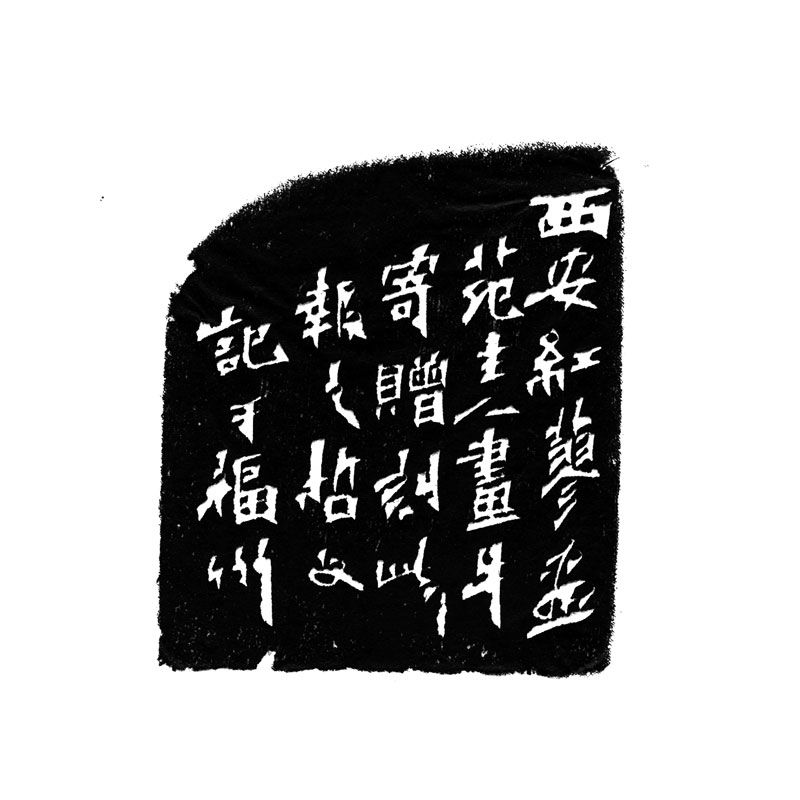 西安紅蓼
苑主人畫牛
寄贈刻此
報之哲文
記于福州